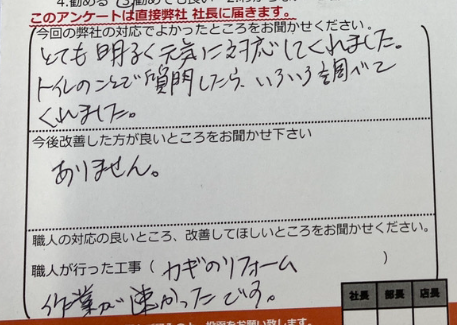 4.勧める 3.勧めても良い
このアンケートは直接弊社 社長に届きます。
今回の弊社の対応でよかったところをお聞かせください。
とても明るく元気に対応してくれました。
トイレのことで質問したら、いろいろ調べて
くれました。
今後改善した方が良いところをお聞かせ下さい
ありません。
職人の対応の良いところ、改善してほしいところをお聞かせください。
職人が行った工事( カギのリフォーム )
作業が速かったです。
社長 部長 店長
お願い致します。